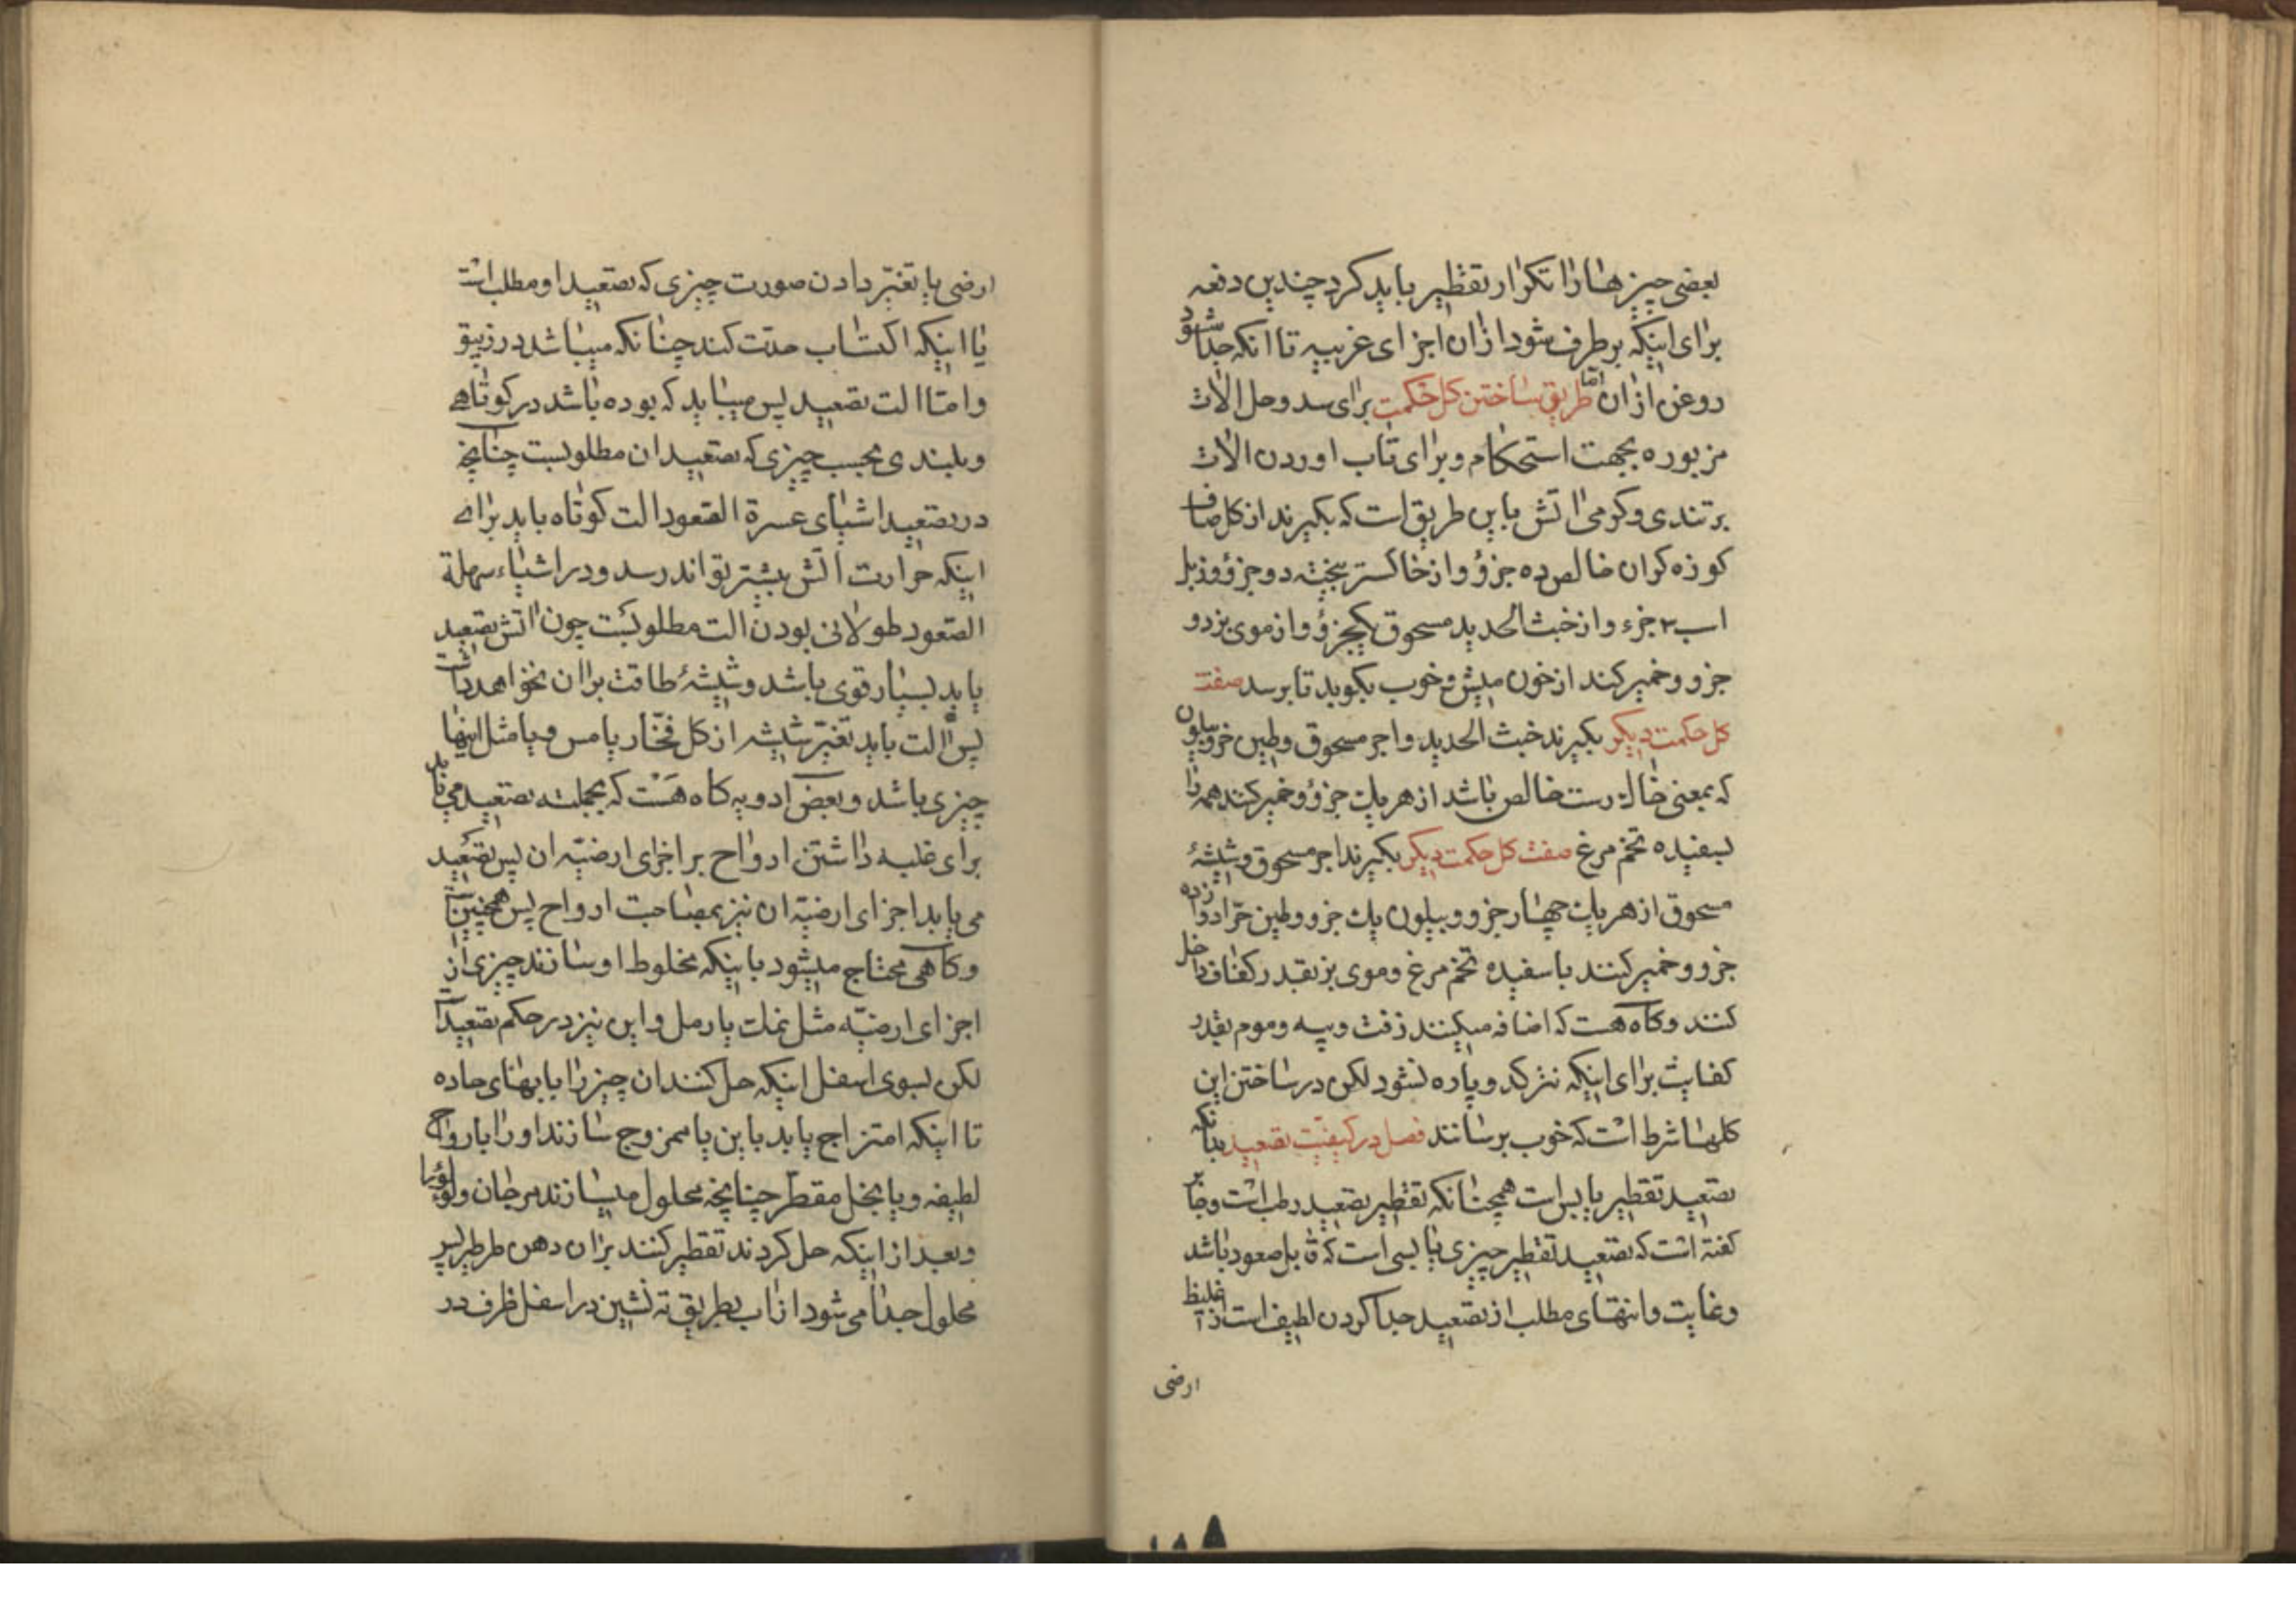 بعضی چیزها را تکرار تقطیر باید کرد چندین دفعه
برای اینکه برطرف شود ازان اجزای غریبه تا انکه جدا شود
روغن ازان امّا طریق ساختن کل حکمت برای سد وحل الات
مزبوره بجهت استحکام و برای تاب اوردن الات
بر تندی و کرمی اتش باین طریق است که بکیرند از کل صاف
کوزه کران خالص ده جزؤ و از خاکستر بیخته دو جزؤ و زبل
اب ۳ جزء و از خبث الحدید مسحوق یکجزؤ و از موی بز دو
جزو و خمیر کند از خون میش و خوب بکوید تا برسد صفت
کل حکمت دیکر بکیرند خبث الحدید و اجر مسحوق و طین خر و بیلون
که بمعنی خاک رست خالص باشد از هر یک جزؤ و خمیر کنند همه را
بسفیده تخم مرغ صفت کل حکمت دیکر بکیرند اجر مسحوق و شیشهٔ
مسحوق از هر یک چهار جزو و بیلون یک جزو و طین حرّ دوازده
جزو و خمیر کنند با سفیده تخم مرغ و موی بز بقدر کفاف داخل
کنند و کاه هست که اضافه میکنند زفت و پیه و موم بقدر
کفایت برای اینکه نترکد و پاره نشود لکن در ساختن این
کلها شرط است که خوب برسانند فصل در کیفیّت تصعید بدانکه
تصعید تقطیر یابس است همچنانکه تقطیر تصعید رطب است و جابر
کفته است که تصعید تقطیر چیزی یابسی است که قابل صعود باشد
و غایت و انتهای مطلب از تصعید جدا کردن لطیف است از غلیظ
ارضی
ارضی یا تغیّر دادن صورت چیزی که تصعید او مطلب است
یا اینکه اکتساب حدّت کند چنانکه میباشد در زیبق
و امّا الت تصعید پس میباید که بوده باشد در کوتاهی
و بلندی بحسب چیزی که تصعید ان مطلوبست چنانچه
در تصعید اشیای عسرة الصّعود الت کوتاه باید برای
اینکه حرارت اتش بیشتر تواند رسد و در اشیاء سهلة
الصّعود طولانی بودن الت مطلوبست چون اتش تصعید
باید بسیار قوی باشد و شیشهٔ طاقت بران نخواهد داشت
پس الت باید تغیّر شیشه از کل فخّار یا مس و یا مثل اینها
چیزی باشد و بعض ادویه کاه هست که بجملته تصعید می یابد
برای غلبه داشتن ارواح بر اجزای ارضیّه ان پس تصعید
می یابد اجزای ارضیّه ان نیز بمصاحبت ارواح پس همچنین است
و کاهی محتاج میشود باینکه مخلوط او سازند چیزی از
اجزای ارضیّه مثل نمک یا رمل و این نیز در حکم تصعید است
لکن بسوی اسفل اینکه حل کنند ان چیز را با بهای حاده
تا اینکه امتزاج یابد باین یا ممزوج سازند او را بارواح
لطیفه و یا بخل مقطّر چنانچه محلول میسازند مرجان و لؤلؤ را
و بعد از اینکه حل کردند تقطیر کنند بران دهن طرطیر پس
محلول جدا می شود از اب بطریق ته نشین در اسفل ظرف در